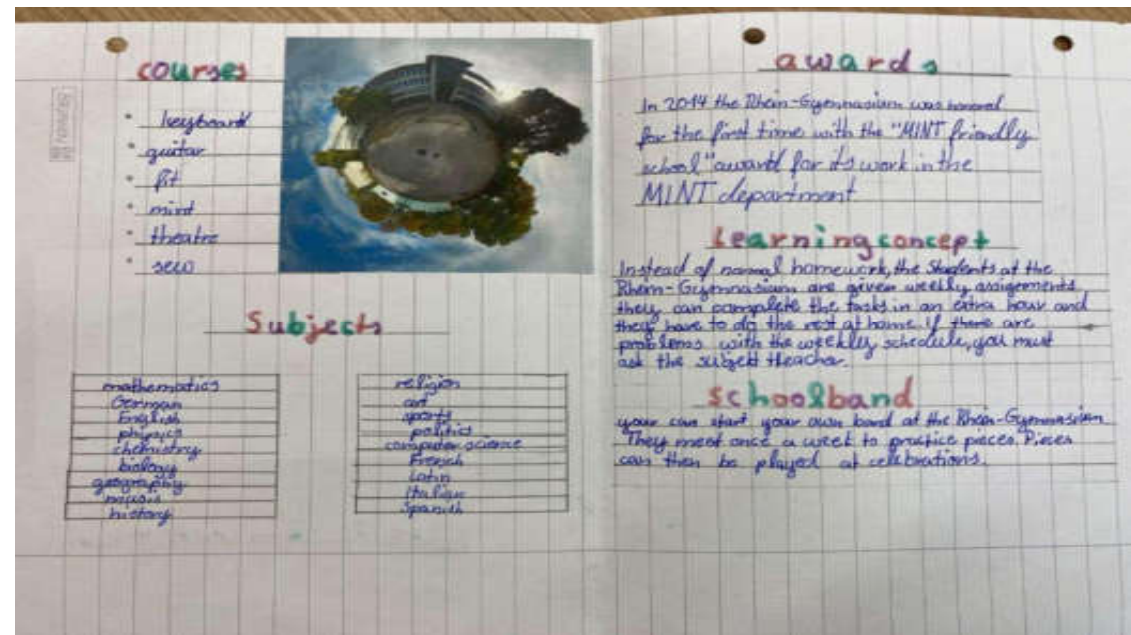 courses
keyboard
guitar
fit
mint
theatre
sew
Subjects
mathematics
German
English
physics
chemistry
biology
geography
music
history
religion
art
sports
politics
computer science
French
Latin
Italian
Spanish
awards
In 2014 the Rhein-Gymnasium was honored
for the first time with the "MINT friendly
school" award for its work in the
MINT department
Learning concept
Instead of normal homework, the Students at the
Rhein-Gymnasium are given weekly assignements
they can complete the tasks in an extra hour and
they have to do the rest at home. If there are
problems with the weekly schedule, you must
ask the subject
schoolband
your can start your own band at the Rhein-Gymnasium
They meet once a week to practice pieces. Pieces
can then be played at celebrations.